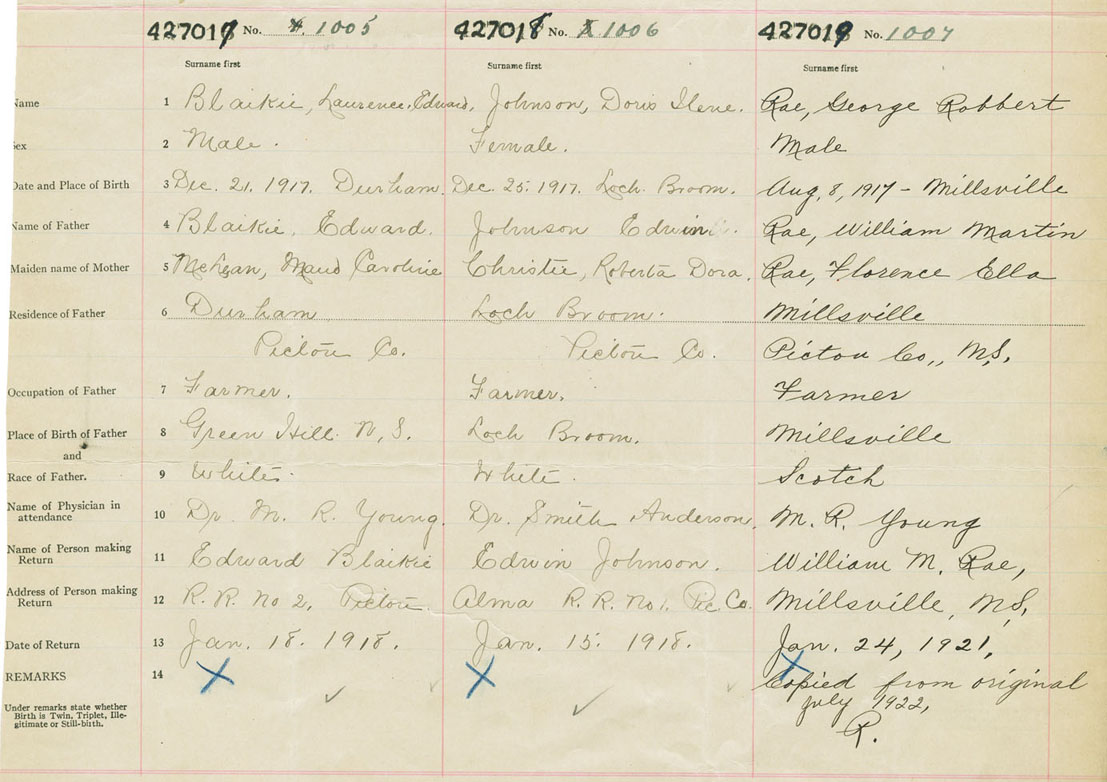 427017 No. 1005 427018 No. 1006 427019 No. 1007
Surname first Surname first Surname first
Name 1 Blaikie, Laurence, Edward, Johnson, Doris Ilene. Rae, George Robbert
Sex 2 Male. Female. Male
Date and Place of Birth 3 Dec. 21, 1917. Durham. Dec. 25, 1917. Loch Broom. Aug. 8, 1917 - Millsville
Name of Father 4 Blaikie, Edward. Johnson Edwin. Rae, William Martin
Maiden name of Mother 5 McLean, Maud Caroline Christie, Roberta Dora. Rae, Florence Ella
Residence of Father 6 Durham Loch Broom. Millsville
Pictou Co. Pictou Co. Pictou Co., N.S.
Occupation of Father 7 Farmer. Farmer. Farmer
Place of Birth of Father 8 Green Hill N.S. Loch Broom. Millsville
and
Race of Father. 9 White. White. Scotch
Name of Physician in
attendance 10 Dr. M. R. Young. Dr. Smith Anderson. M. R. Young
Name of Person making
Return 11 Edward Blaikie Edwin Johnson. William M. Rae,
Address of Person making
Return 12 R. R. No 2, Pictou. Alma R. R. No 1. Pic Co. Millsville, N.S.
Date of Return 13 Jan. 18. 1918. Jan. 15. 1918. Jan. 24, 1921.
REMARKS 14 Copied from original
July 1922,
R.
Under remarks state whether
Birth is Twin, Triplet, Ille-
gitimate or Still-birth.